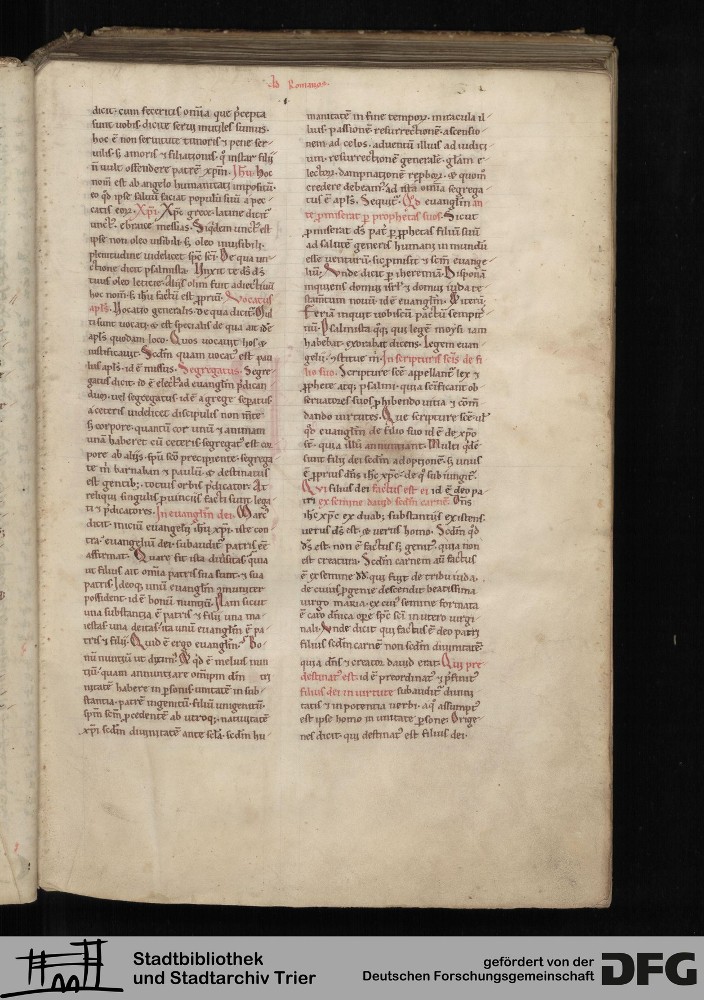 Ad Romanos.
dicit. cum feceritis om̅ia que p̅cepta
sunt uobis. dicite serui inutiles sumus.
hoc ē non seruitute timoris ⁊ pene ser-
uilis. s; amoris ⁊ filiationis. q̇ instar filii
n̅ uult offendere patrē. xp̅m. Ih̅u. Hoc
nom̅ est ab angelo humanitati impositū.
eo qd̅ ipse saluū faciat populū suū a pec-
catis eoꝝ. Xp̅i. Xp̅c grece. latine dicit᷑
unct᷒. ebraice messias. Siq̇dem unct᷒ est
ipse non oleo uisibili. s; oleo inuisibili.
plenitudine uidelicet sp̅c sc̅i. De qua un-
ctione dicit psalmista. Unxit te ds̅ ds̅
tuus oleo leticie. Aliis olim fuit adiectiuū
hoc nom̅. s; ih̅u factū est ꝓpriū. Vocatus
apl̅s. Vocatio generalis. de qua dicit᷑.
apl̅s quodam loco. Quos uocauit hos ⁊
iustificauit. Scd̅m quam uocat᷒ est pau
lus apl̅s. id ē missus. Segregatus. Segre-
gatus dicit. id ē elect᷒ ad euangliū p̅dican
duꝫ. uel segregatus. id ē a grege separatus
a ceteris uidelicet discipulis non m̅te
s; corpore. quantū cor unū ⁊ animam
unā haberet cū ceteris. segregat᷒ est cor
pore ab aliis. sp̅u sc̅o precipiente. segrega
te m̅ barnaban ⁊ paulū. ⁊ destinatus
est gentib;. totius orbis p̅dicator. At
reliqui singulis ꝓuinciis facti sunt lega
ti ⁊ p̅dicatores. In euangliū dei. Marc᷒
dicit. iniciū euangelij ih̅u xp̅i. iste con-
tra. euangeliū dei. subaudit᷑ patris eē
affirmat. Quare fit ista diuersitas. quia
ut filius ait. om̅ia patris sua sunt. ⁊ sua
patris. Ideoq; unū euangliū ꝯmuniter
possident. id ē bonū nunciū. Nam sicut
una substantia ē patris ⁊ filii. una ma-
iestas. una deitas. ita unū euangliū ē pa-
tris ⁊ filii. Quid ē ergo euangliū. Bo-
nū nunciū ut diximus. Et qd̅ ē melius nun
ciū. quam annunciare om̅ipm̅ d̅m tri
nitatē habere in ꝑsonis. unitatē in sub-
stantia. patrē ingenitū. filiū unigenitū.
sp̅m sc̅m ꝓcedentē ab utroq;. natiuitatē
xp̅i scd̅m diuinitatē ante scl̅a. scd̅m hu-
manitatē in fine tempoꝝ. miracula il-
lius. passionē. resurrectionē. ascensio-
nem ad celos. aduentū illius ad iudici-
um. resurrectionē generalē. gl̅am e-
lectoꝝ. damnationē reproboꝝ. ⁊ quom̅
credere debeam᷒. ad ista om̅ia segrega-
tus ē apl̅s. Sequit᷑. Qd̅ euangliū an-
te ꝓmiserat ꝑ prophetas suos. Sicut
ꝓmiserat ds̅ pat̅ ꝑ ꝓphetas filiū suū
ad salutē generis humani in mundū
esse uenturū. sic ꝓmisit ⁊ sc̅m euange-
liū. Vnde dicit ꝑ iheremiā. Disponā
inquiens domui isrl̅ ⁊ domui iuda te
stamtum nouū. id ē euangliū. Et iterū.
Feriā inquit uobiscū pactū sempit̅
nū. Psalmista q̇q; qui legē moysi iam
habebat. exorabat dicens. Legem euan
gelii. statue m̅. In scripturis sc̅is de fi
lio suo. Scripture sc̅e appellant᷑ lex ⁊
ꝓphete atq; psalmi. quia sc̅ificant ob
seruatores suos ꝓhibendo uitia ⁊ com̅
dando uirtutes. Que scripture sc̅e. ul᷑
qd̅ euangliū de filio suo. id ē de xp̅o
st̅. quia illū annunciant. Multi qid̅e
sunt filii dei scd̅m adoptionē. s; unus
ē ꝓprius d̅ni ih̅c xp̅c. de q̇ sub iungit᷑.
Qui filius dei factus est ei. id ē deo pa
tri ex semine dauid scd̅m carnē. Dn̅s
ih̅c xp̅c ex duab; substantiis existens
uerus ds̅ est. ⁊ uerus homo. Scd̅m qd̅
ds̅ est. non ē factus s; genit᷒. quia non
est creatura. Scd̅m carnem au̅ factus
ē ex semine dd̅. qui fuit de tribu iuda.
de cuius ꝓgenie descendit beatissima
uirgo maria. ex cui᷒ semine formata
ē caro diuica ope sp̅c sc̅i in utero uirgi
nali. Vnde dicit qui factus ē deo patri
filius scd̅m carnē non scd̅m diuinitatē
quia d̅ni ⁊ creator dauid erat. Qui pre
destinat᷒ est. id ē preordinat᷒ ⁊ p̅finit᷒
filius dei in uirtute. subaudit᷑ diuini
tatis ⁊ in potentia uerbi. a q̇ assumpt᷒
est ipse homo in unitate ꝑsone. Orige-
nes dicit. qui destinat᷒ est filius dei.
Stadtbibliothek
und Stadtarchiv Trier
gefördert von der
Deutschen Forschungsgemeinschaft
DFG